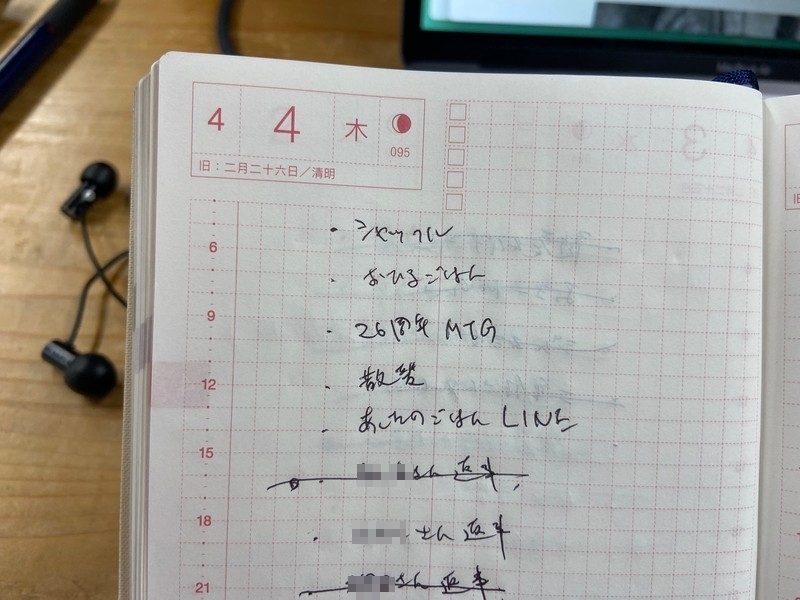 4 4 木
095
旧：二月二十六日／清明
6
9
12
15
18
21
・シャッフル
・おひるごはん
・26周年 MTG
・散策
・あしたのごはん LINE
・さん 返事
・さん 返事
・さん 返事